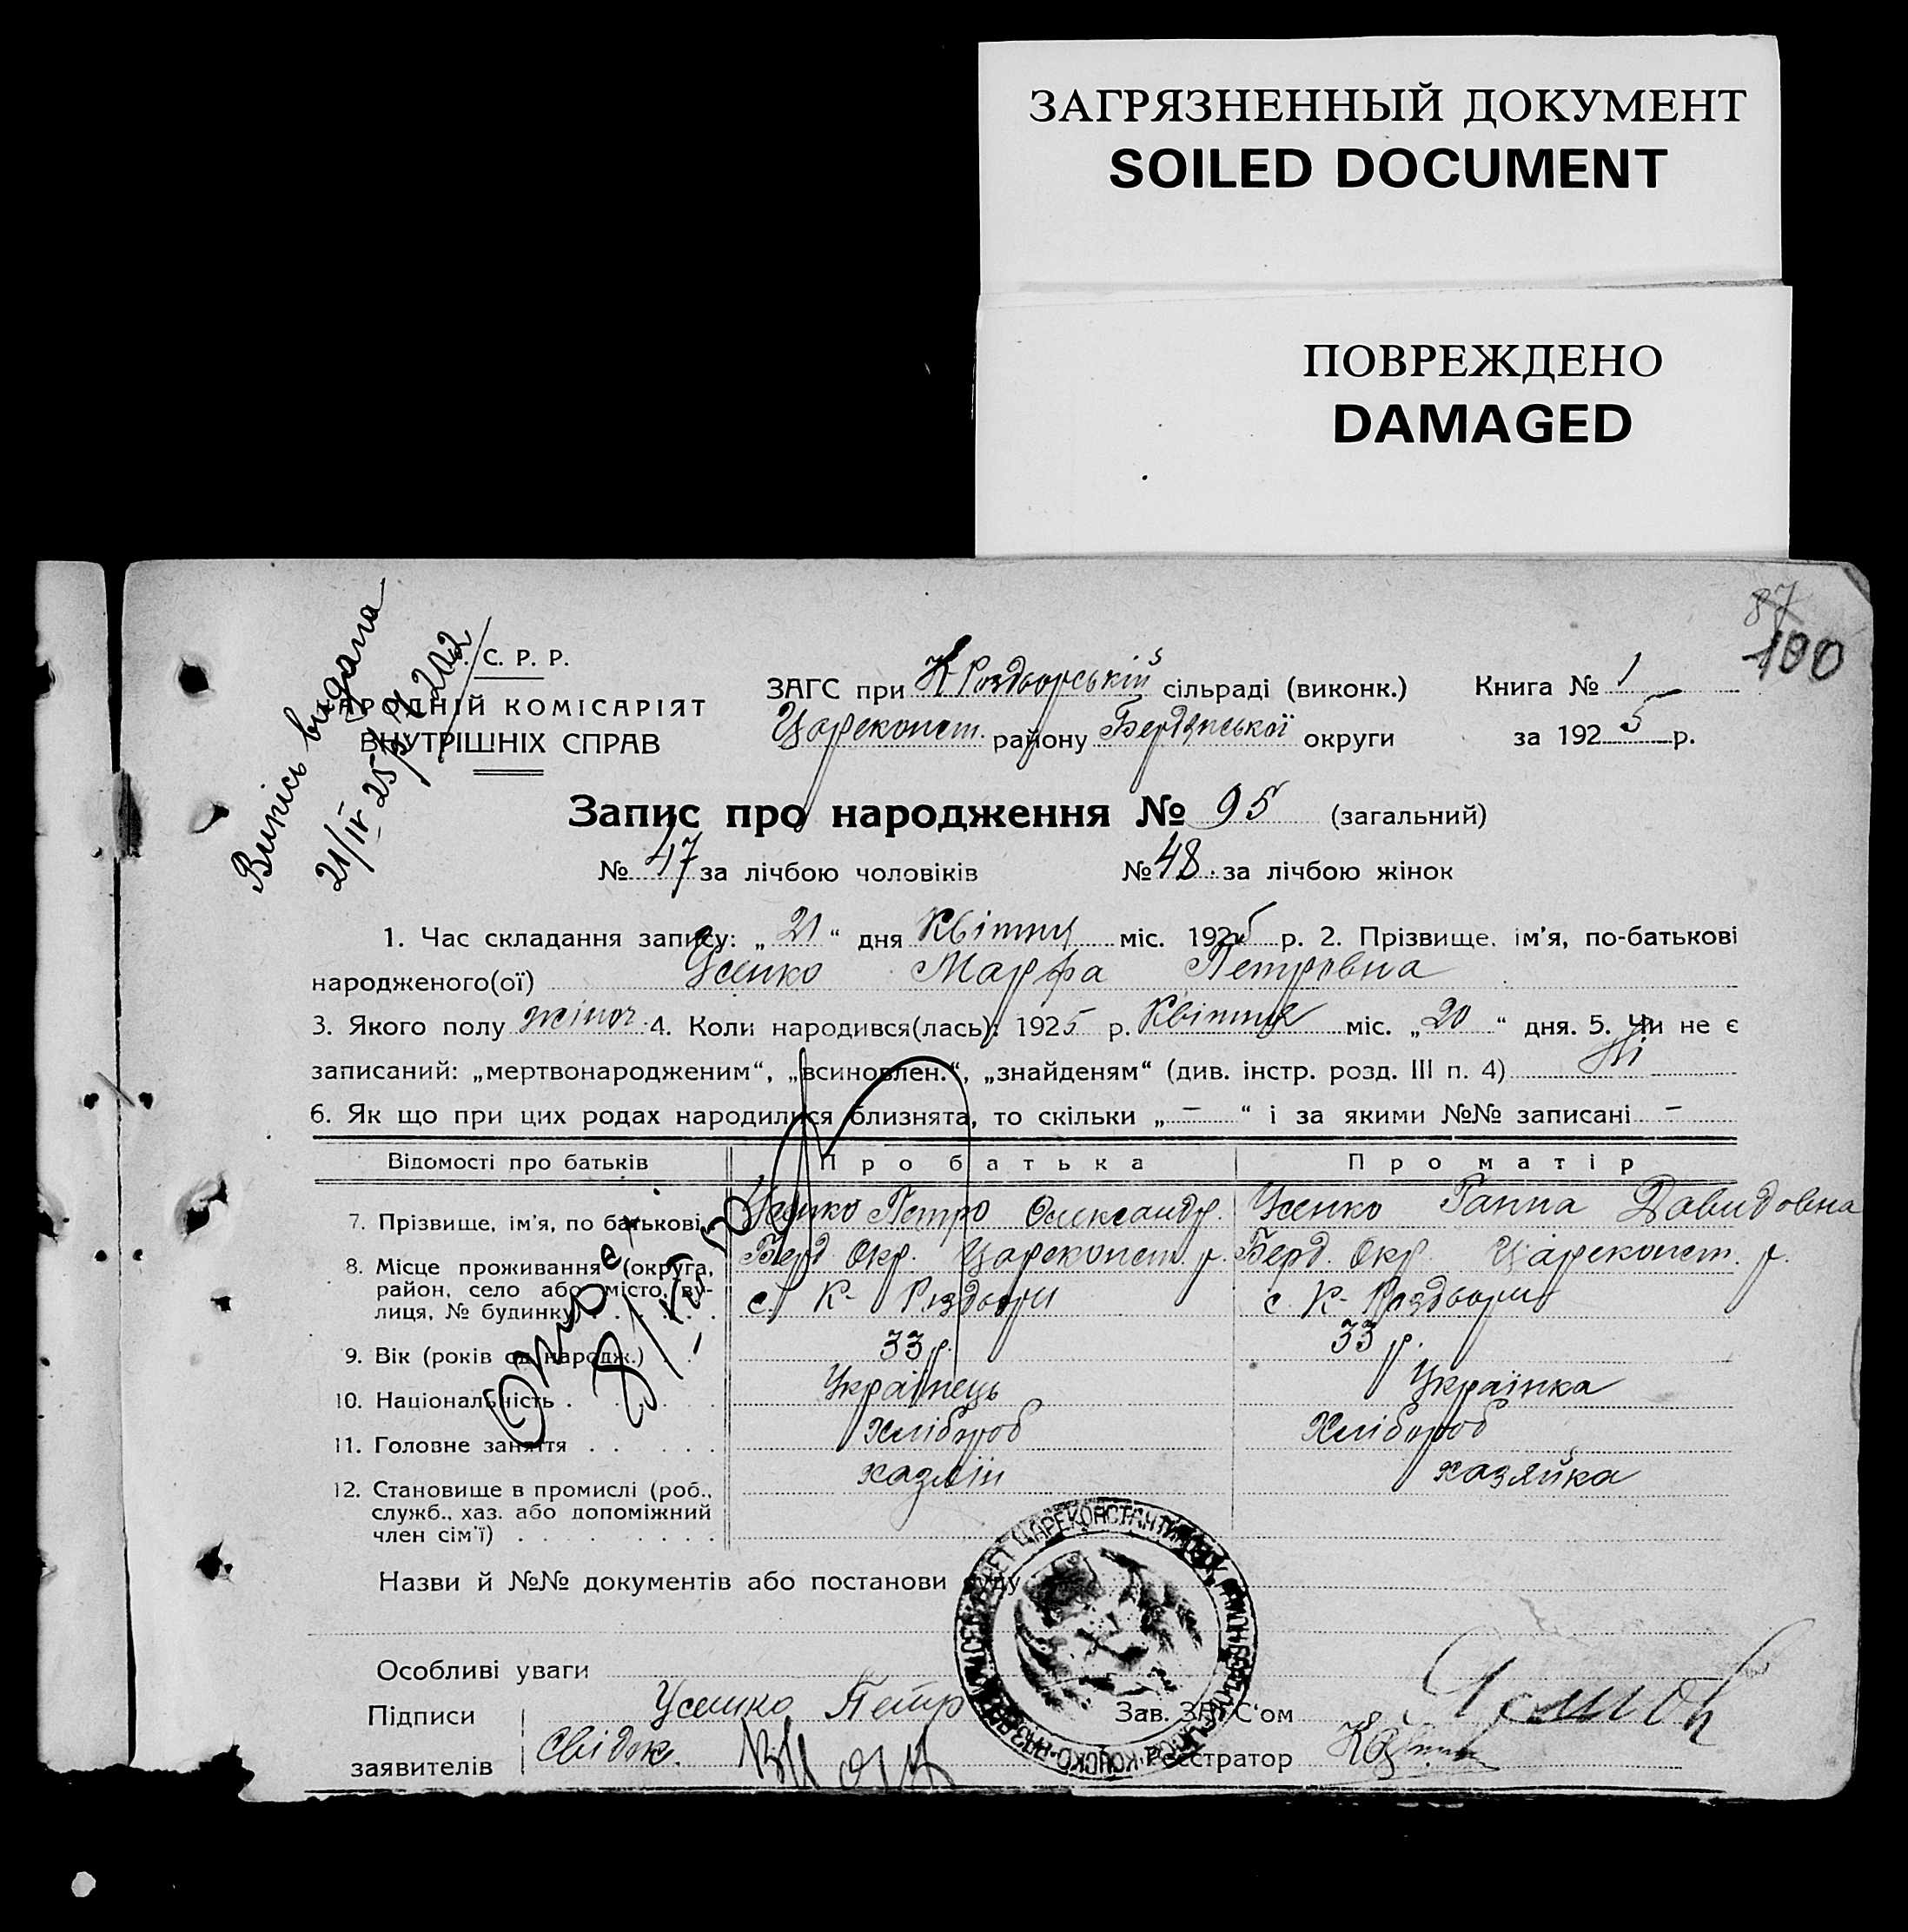 ЗАГРЯЗНЕННЫЙ ДОКУМЕНТ
SOILED DOCUMENT
ПОВРЕЖДЕНО
DAMAGED
87
100
Випісь видана
21/IV 25 р. 202
С. Р. Р.
АРОДНІЙ КОМІСАРІЯТ
ВНУТРІШНІХ СПРАВ
ЗАГС при К Роздорській сільраді (виконк.) Книга № 1
Цареконст. району Бердянської округи за 1925 р.
Запис про народження № 95 (загальний)
№ 47 за лічбою чоловіків № 48 за лічбою жінок
1. Час складання запису: „21“ дня Квітня міс. 1925 р. 2. Прізвище, ім'я, по-батькові
народженого(ої) Усенко Марфа Петровна
3. Якого полу жіноч. 4. Коли народився(лась): 1925 р. Квітня міс. „20“ дня. 5. Чи не є
записаний: „мертвонародженим“, „всиновлен.“, „знайденям“ (див. інстр. розд. III п. 4) Ні
6. Як що при цих родах народилися близнята, то скільки „–“ і за якими №№ записані –
Відомості про батьків Про батька Про матір
7. Прізвище, ім'я, по батькові Усенко Петро Олександр. Усенко Ганна Давидовна
8. Місце проживання (округа, район, село або місто, вулиця, № будинку Берд. Окр. Цареконст. р. Берд. Окр. Цареконст. р.
с. К- Роздори с. К- Роздори
9. Вік (років од народж.) 33 р. 33 р.
10. Національність Українець Українка
11. Головне заняття Хлібороб Хлібороб
12. Становище в промислі (роб., хазяїн хазяйка
служб., хаз. або допоміжний
член сім'ї)
Назви й №№ документів або постанови суду
Особливі уваги
Підписи Усенко Петр Зав. ЗАГС'ом
заявителів Свідок. Реєстратор